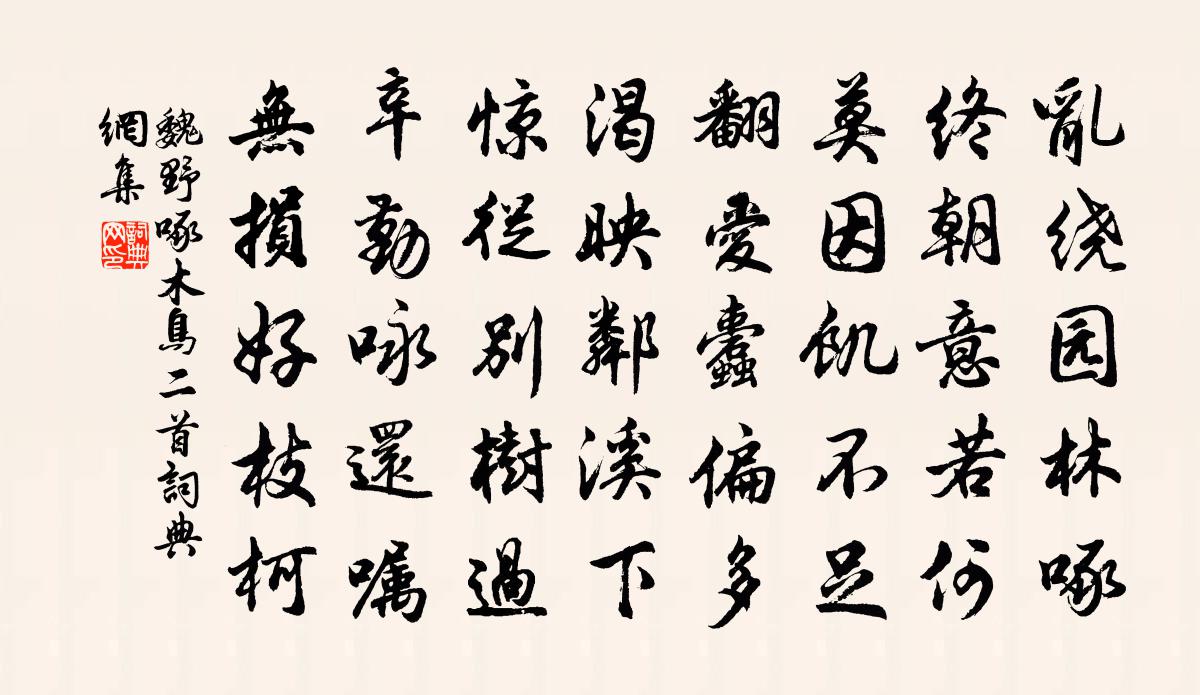 亂绕园林啄
终朝意若何
莫因飢不足
翻愛蠹偏多
渴映鄰溪下
惊從别樹過
辛勤咏還嘱
無損好枝柯
魏野啄木鳥二首詞典
網集
詞典
网印